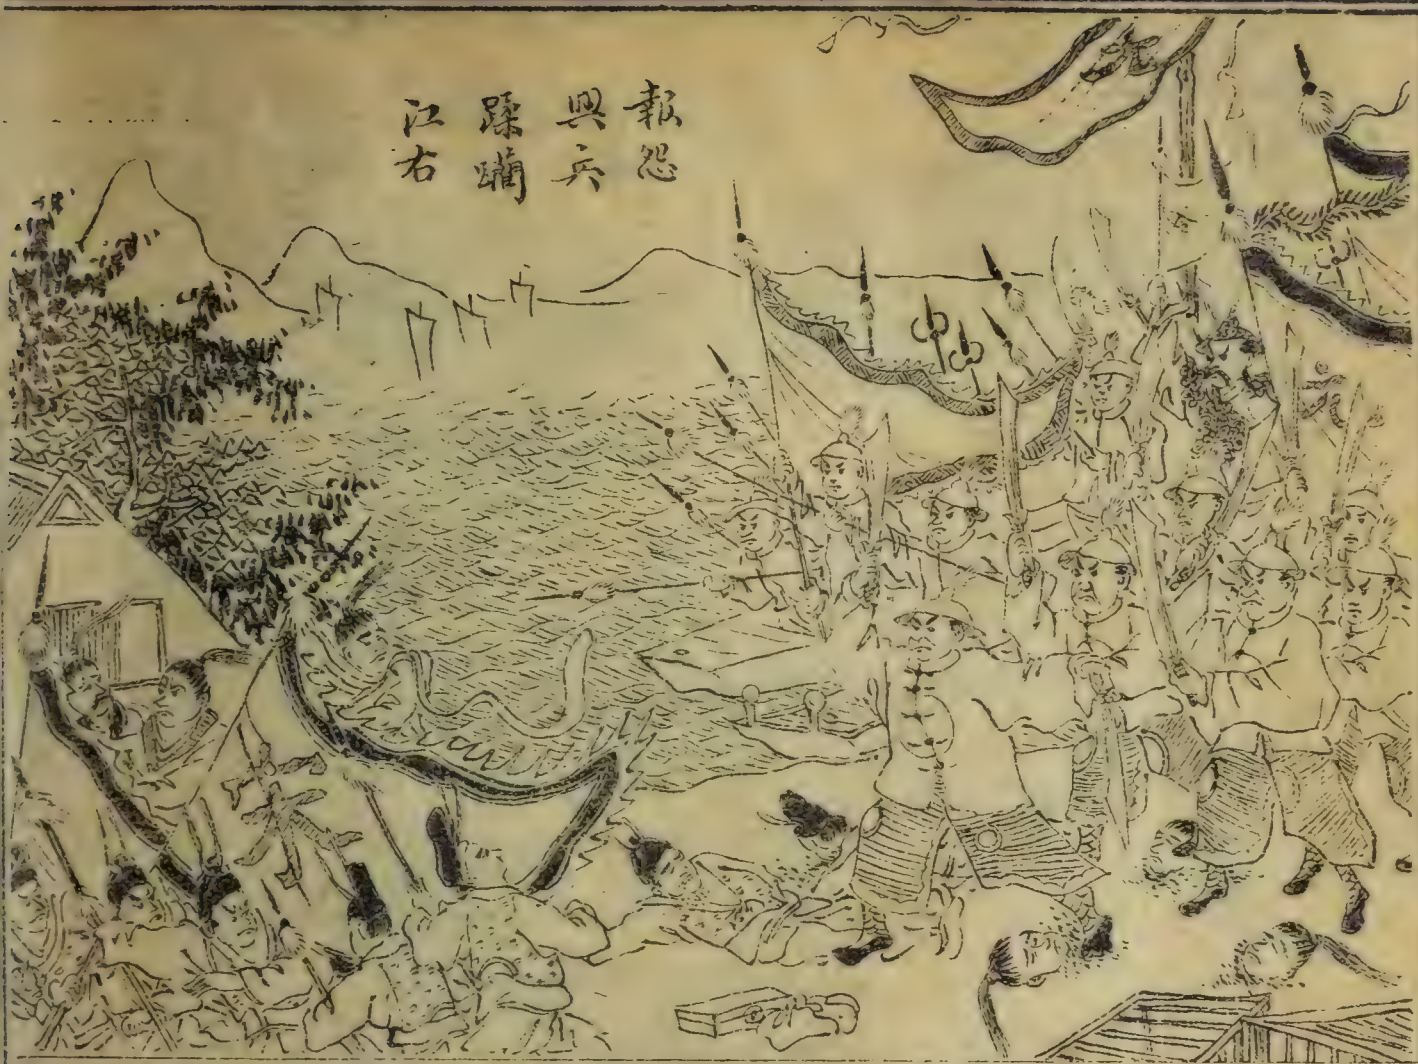 報怨
興兵
蹂躪
江右